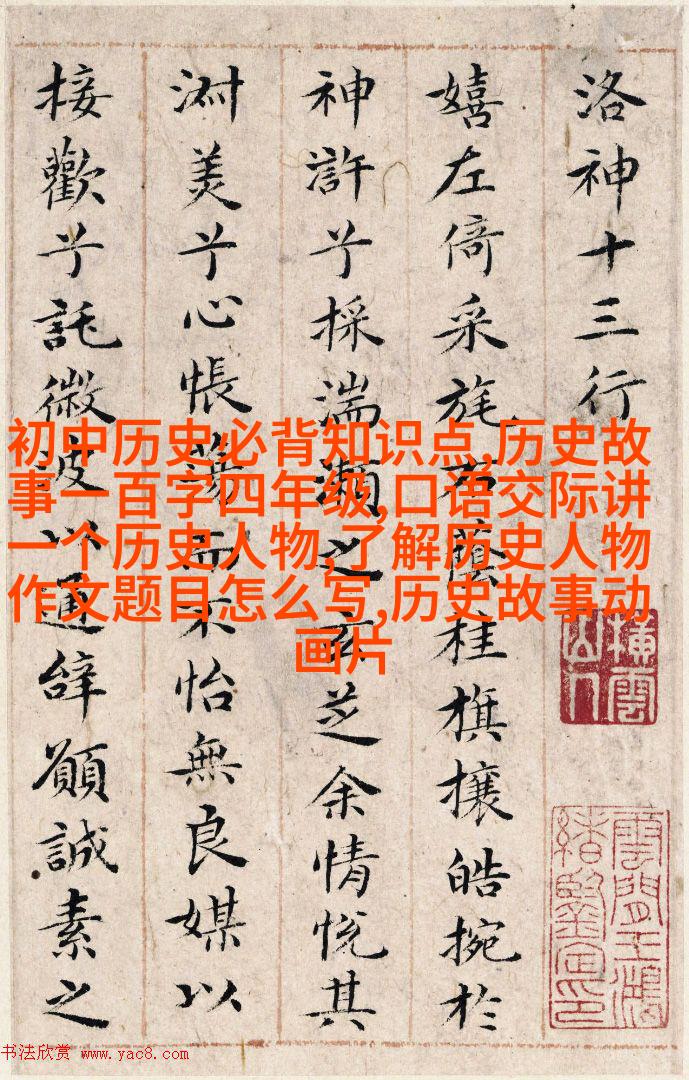 洛神十三行
嬉左倚采旄右蔭桂旗攘皓捥於
神滸兮採湍瀨之玄芝余情悅其
淑美兮心悵蕩而不怡無良媒以
接歡兮託微波以通辭願誠素之
初中历史必背知识点,历史故
事一百字四年级,口语交际讲
一个历史人物,了解历史人物
作文题目怎么写,历史故事动
画片
橫雲山人
雲間王鴻緒鑒定印
书法欣赏 www.yac8.com